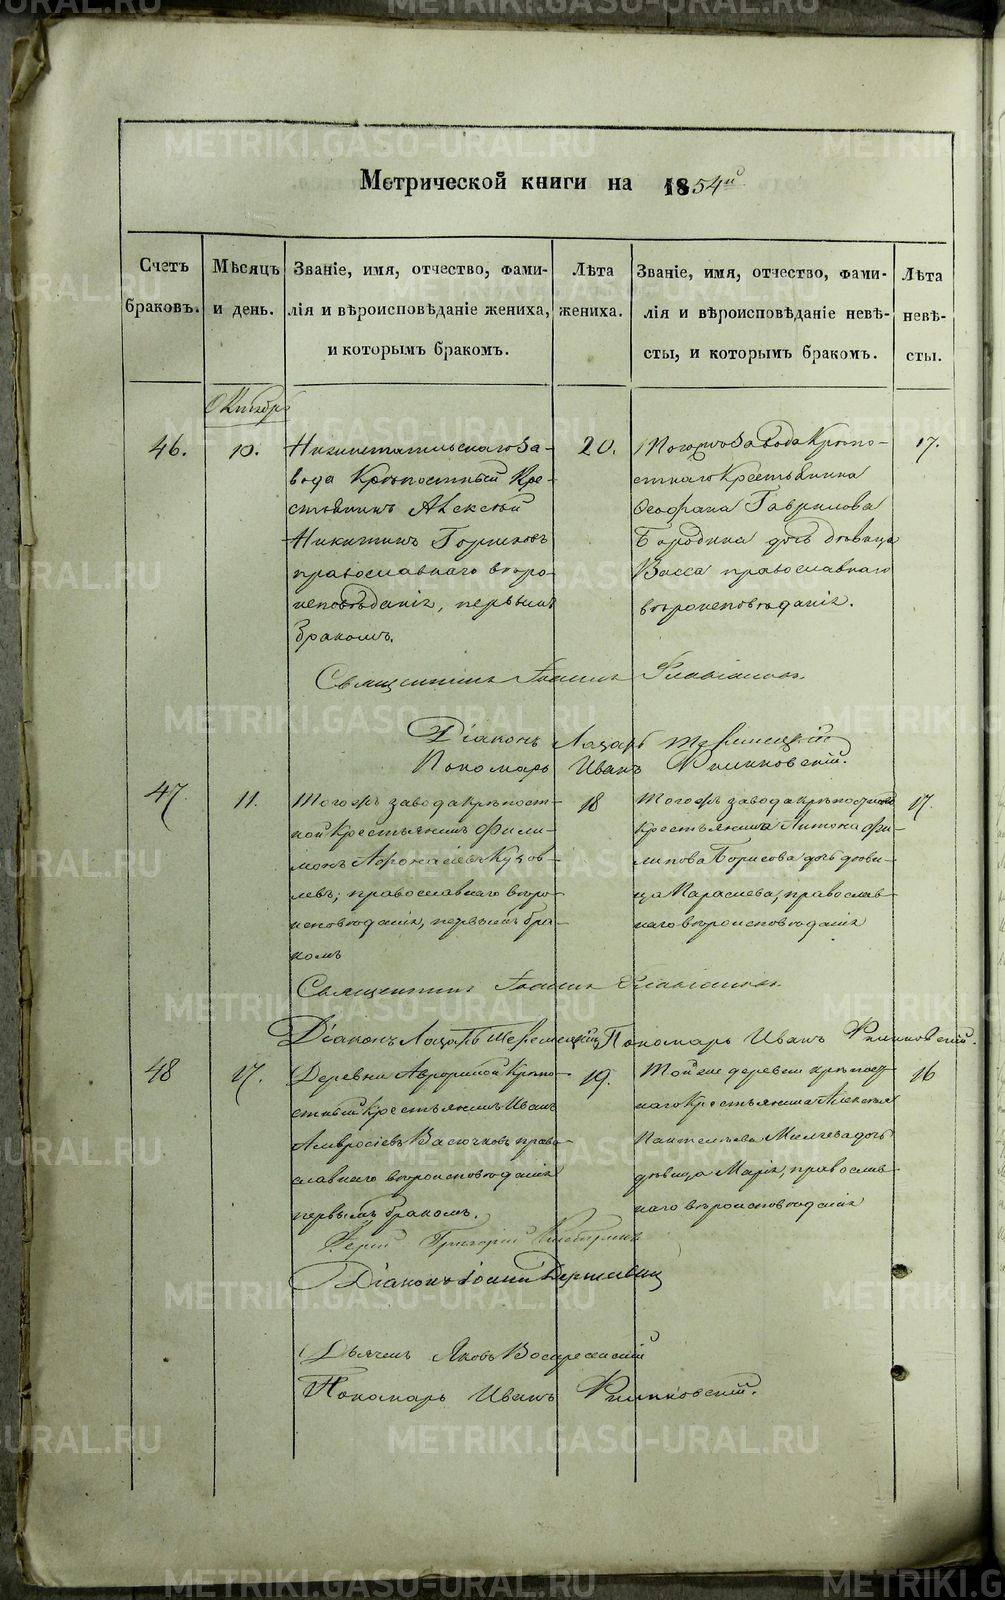 Метрической книги на 1854й
Счетъ браковъ.
Мѣсяцъ и день.
Званіе, имя, отчество, фами-
лія и вѣроисповѣданіе жениха,
и которымъ бракомъ.
Лѣта жениха.
Званіе, имя, отчество, фами-
лія и вѣроисповѣданіе невѣ-
сты, и которымъ бракомъ.
Лѣта невѣ-
сты.
Октябрь
46.
10.
Нижнетагильскаго за-
вода Крѣпостный Кре-
стьянинъ Алексѣй
Никитинъ Горшковъ
православнаго вѣро-
исповѣданія, первымъ
бракомъ.
20.
Тогожъ Завода Крѣпо-
стнаго Крестьянина
Ѳеофана Гаврилова
Бородина дочь дѣвица
Васса православнаго
вѣроисповѣданія.
17.
Священникъ Іоаннъ Флавіановъ
Діаконъ Лазарь
Пономарь Иванъ
47.
11.
Тогожъ завода крѣпост-
ной крестьянинъ Фили-
монъ Афонасіевъ
православнаго вѣро-
исповѣданія, первымъ бра-
комъ
18
Тогожъ завода крѣпостнаго
крестьянина Антона Фи-
липова Борисова дочь дѣви-
ца православ-
наго вѣроисповѣданія
17.
Священникъ Іоаннъ Флавіановъ
Діаконъ Лазарь Пономарь Иванъ
48
17.
Деревни Аврориной Крѣпо-
стный крестьянинъ Иванъ
Амвросіевъ Васючковъ право-
славнаго вѣроисповѣданія
первымъ бракомъ.
19.
Той же деревни крѣпост-
наго крестьянина Алексѣя
Пантелѣева дочь
дѣвица Марія, православ-
наго вѣроисповѣданія
16
Іерей Григорій
Діаконъ Іоаннъ
Дьячекъ Яковъ Воскресенскій
Пономарь Иванъ
METRIKI.GASO-URAL.RU